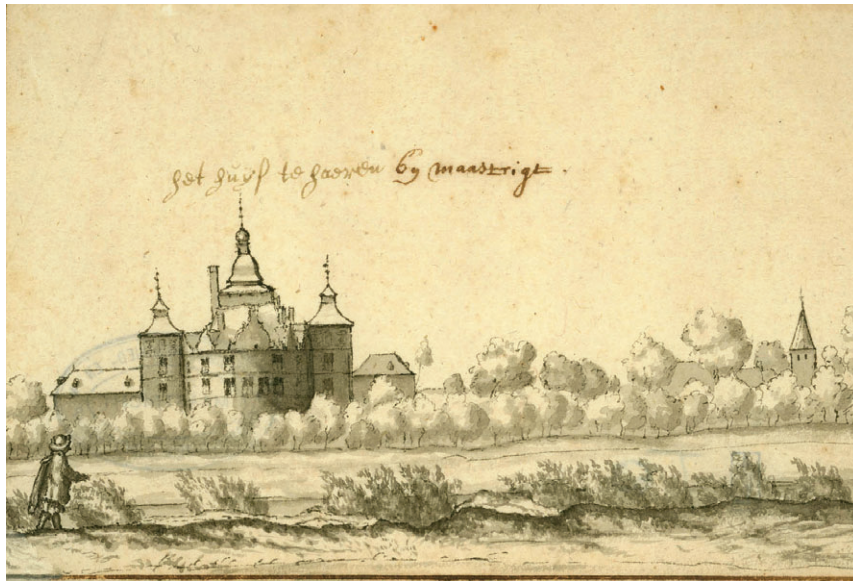 het huÿs te haeren by maastrigt.